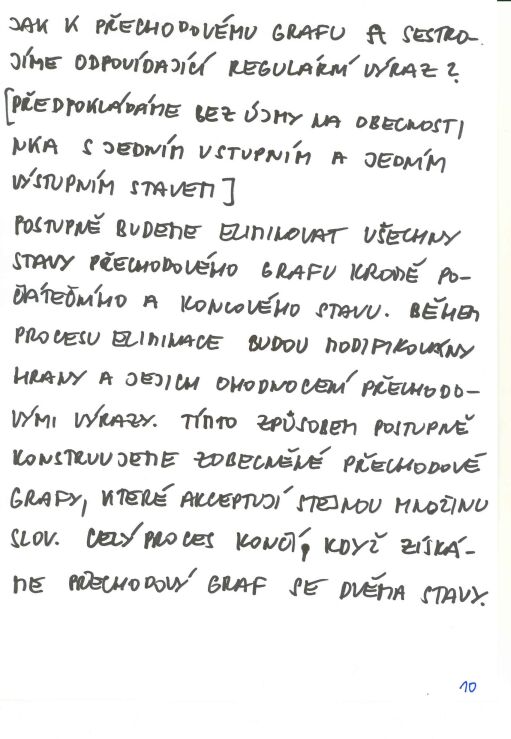 JAK K PŘECHODOVÉMU GRAFU A SESTRO-
JÍME ODPOVÍDAJÍCÍ REGULÁRNÍ VÝRAZ?
[PŘEDPOKLÁDÁME BEZ ÚJMY NA OBECNOSTI
NKA S JEDNÍM VSTUPNÍM A JEDNÍM
VÝSTUPNÍM STAVEM]
POSTUPNĚ BUDEME ELIMINOVAT VŠECHNY
STAVY PŘECHODOVÉHO GRAFU KROMĚ PO-
ČÁTEČNÍHO A KONCOVÉHO STAVU. BĚHEM
PROCESU ELIMINACE BUDOU MODIFIKOVÁNY
HRANY A JEJICH OHODNOCENÍ PŘECHODO-
VÝMI VÝRAZY. TÍMTO ZPŮSOBEM POSTUPNĚ
KONSTRUUJEME ZOBECNĚNÉ PŘECHODOVÉ
GRAFY, KTERÉ AKCEPTUJÍ STEJNOU MNOŽINU
SLOV. CELÝ PROCES KONČÍ, KDYŽ ZÍSKÁ-
ME PŘECHODOVÝ GRAF SE DVĚMA STAVY.
10